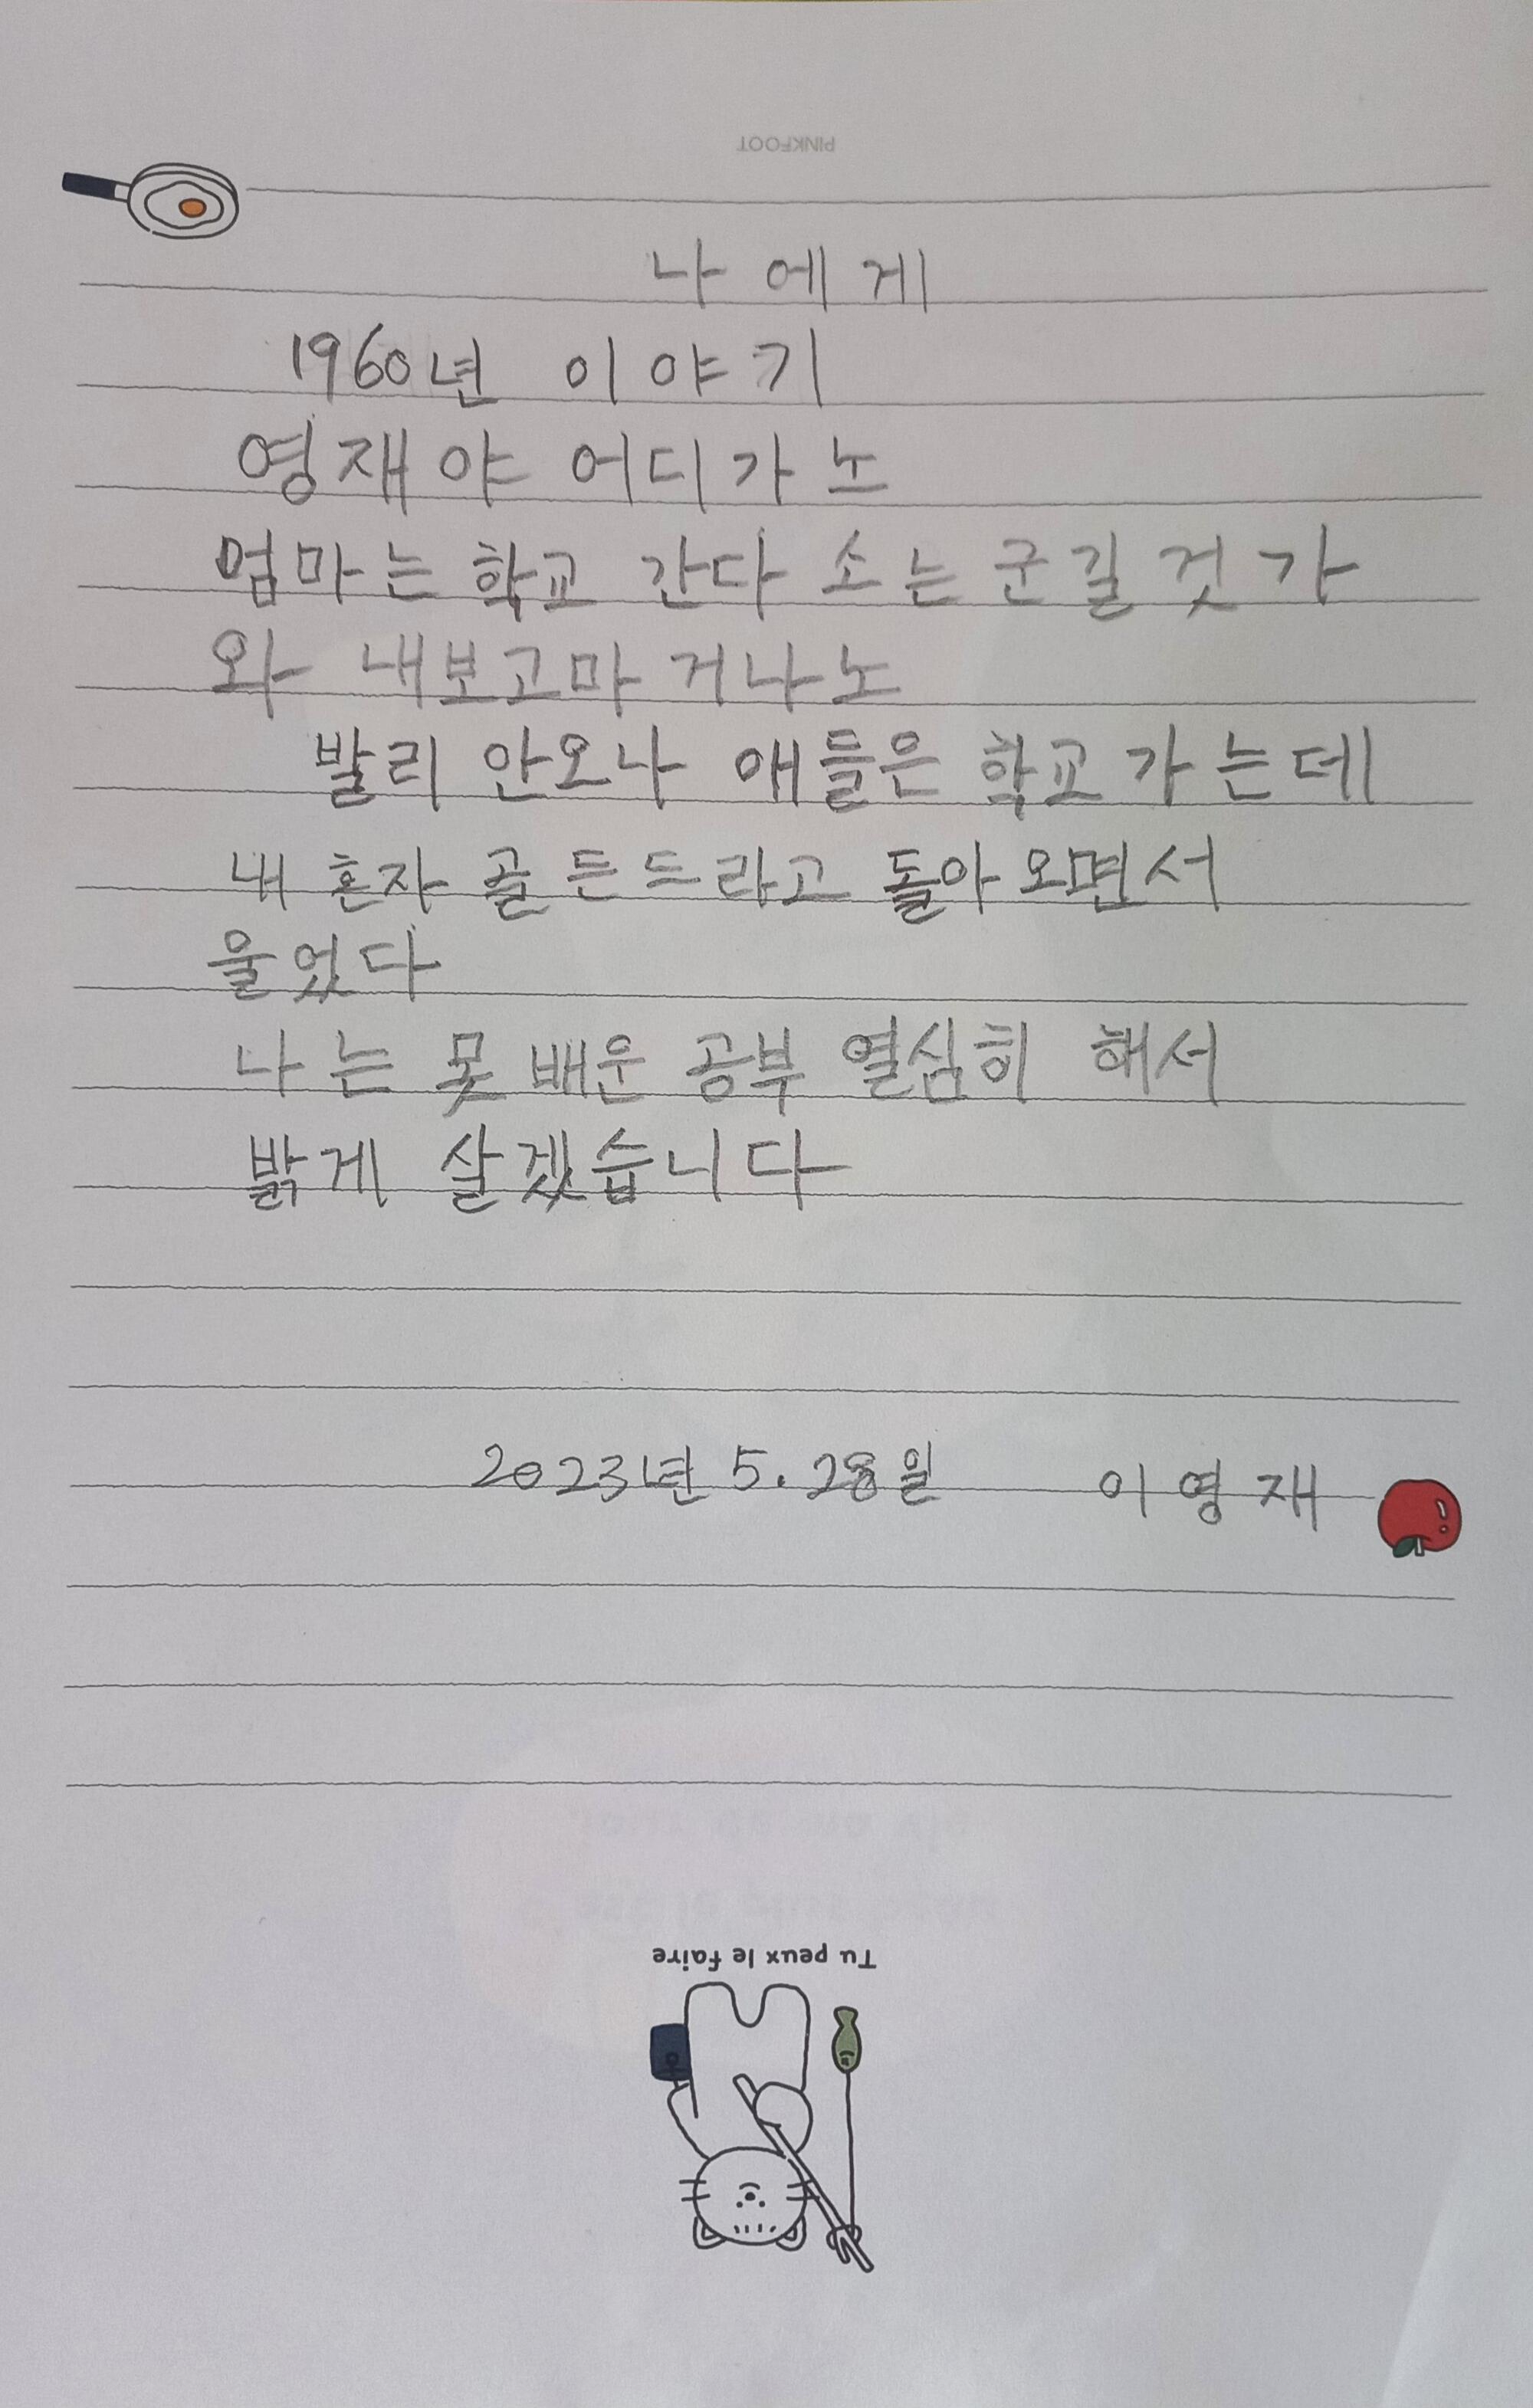 PINKFOOT
나에게
1960년 이야기
영재야 어디가노
엄마는 학교 간다 소는 군길것가
와 내보고마 거나노
발리 안오나 애들은 학교가는데
내 혼자 골든드라고 돌아오면서
울었다
나는 못 배운 공부 열심히 해서
밝게 살겠습니다
2023년 5.28일 이영재
Tu peux le faire